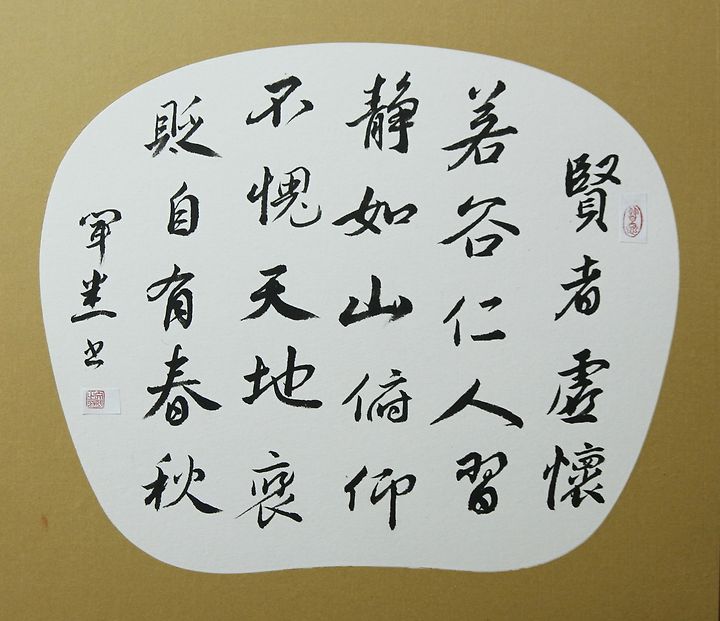 賢者虛懷
若谷仁人習
静如山俯仰
不愧天地褒
貶自有春秋